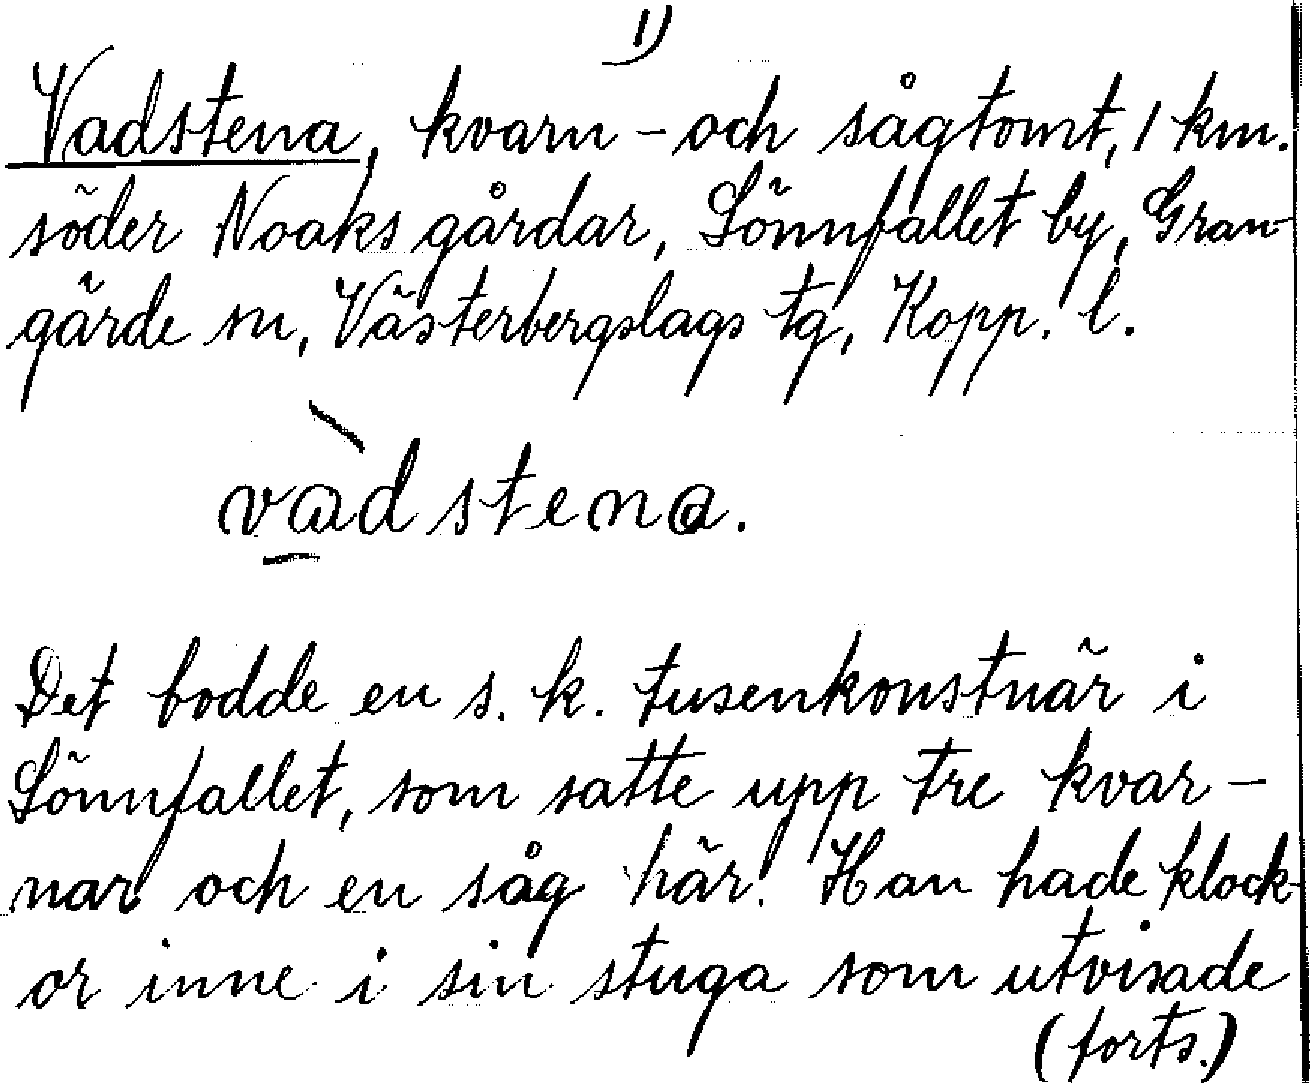 1)
Vadstena, kvarn- och sågtomt, 1 km.
söder Noaks gårdar, Sönnfallet by, Gran-
gärde sn, Västerbergslags tg, Kopp. l.
vàdstena.
Det bodde en s. k. tusenkonstnär i
Sönnfallet, som satte upp tre kvar-
nar och en såg här. Han hade klock-
or inne i sin stuga som utvisade
(forts.)